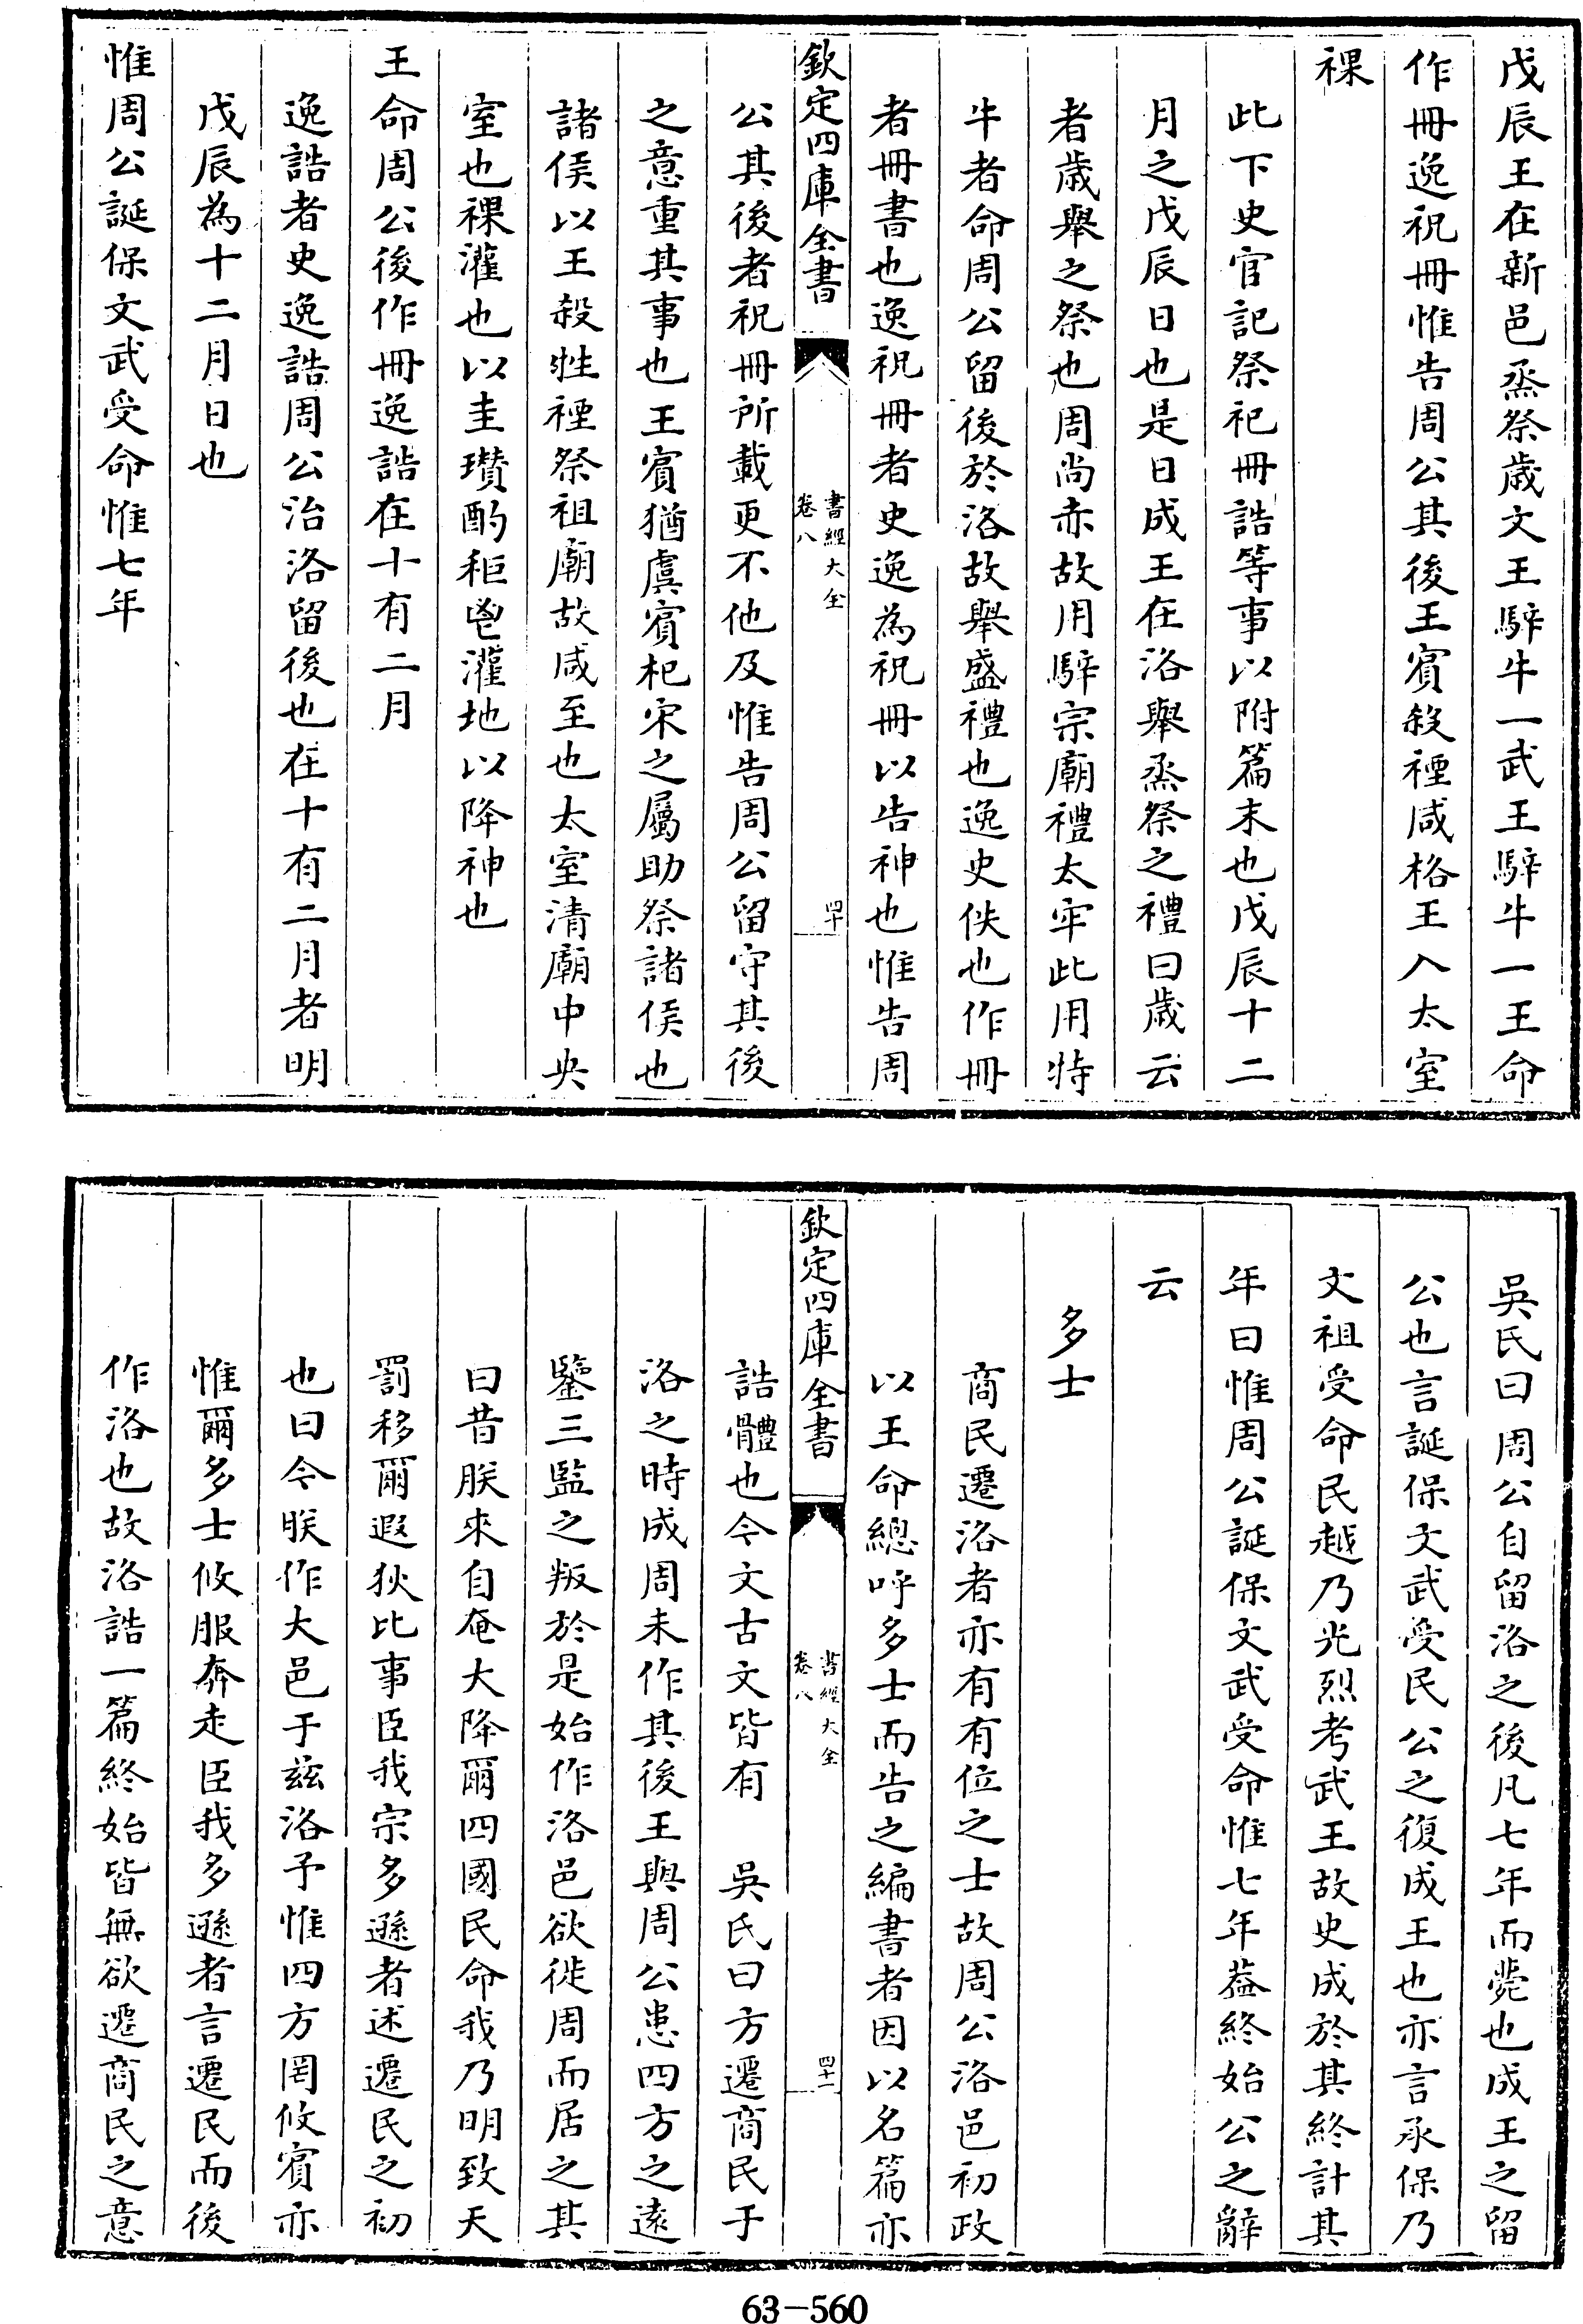 戊辰王在新邑烝祭歲文王騂牛一武王騂牛一王命
作冊逸祝冊惟告周公其後王賓殺禋咸格王入太室
祼
此下史官記祭祀冊誥等事以附篇末也戊辰十二
月之戊辰日也是日成王在洛舉烝祭之禮曰歲云
者歲舉之祭也周尚赤故用騂宗廟禮太牢此用特
牛者命周公留後於洛故舉盛禮也逸史佚也作冊
者冊書也逸祝冊者史逸為祝冊以告神也惟告周
欽定四庫全書
書經大全
卷八
四十
公其後者祝冊所載更不他及惟告周公留守其後
之意重其事也王賓猶虞賓杞宋之屬助祭諸侯也
諸侯以王殺牲禋祭祖廟故咸至也太室清廟中央
室也祼灌也以圭瓚酌秬鬯灌地以降神也
王命周公後作冊逸誥在十有二月
逸誥者史逸誥周公治洛留後也在十有二月者明
戊辰為十二月日也
惟周公誕保文武受命惟七年
吳氏曰周公自留洛之後凡七年而薨也成王之留
公也言誕保文武受民公之復成王也亦言承保乃
文祖受命民越乃光烈考武王故史成於其終計其
年曰惟周公誕保文武受命惟七年葢終始公之辭
云
多士
商民遷洛者亦有有位之士故周公洛邑初政
以王命總呼多士而告之編書者因以名篇亦
欽定四庫全書
書經大全
卷八
四十一
誥體也今文古文皆有　吳氏曰方遷商民于
洛之時成周未作其後王與周公患四方之遠
鑒三監之叛於是始作洛邑欲徙周而居之其
曰昔朕來自奄大降爾四國民命我乃明致天
罰移爾遐狄比事臣我宗多遜者述遷民之初
也曰今朕作大邑于兹洛予惟四方罔攸賓亦
惟爾多士攸服奔走臣我多遜者言遷民而後
作洛也故洛誥一篇終始皆無欲遷商民之意
63-560